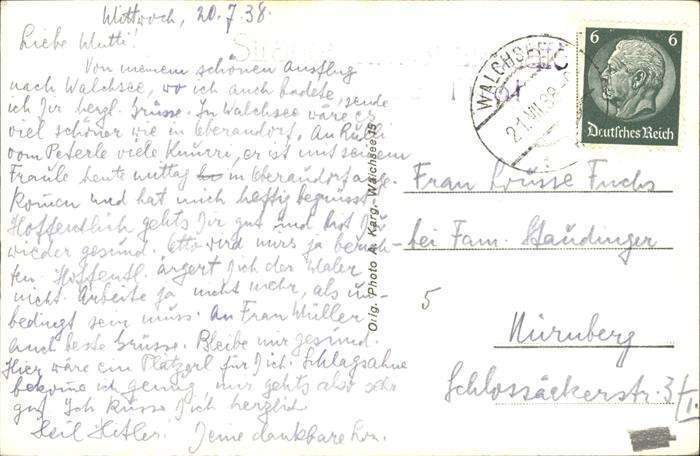 Mittwoch, 20.7.38.
Liebe Mutti!
Von meinem schönen Ausflug
nach Walchsee, wo ich auch badete, sende
ich Dir herzl. Grüsse. In Walchsee wäre es
viel schöner wie in Oberaudorf. An Rudi
vom Peterle viele er ist mit seinem
Fraule heute mittag in Oberaudorf ange-
kommen und hat mich heftig begrüsst.
Hoffentlich gehts Dir gut und bist Du
wieder gesund. Otto wird mirs ja berich-
ten. Hoffentl. ärgert Dich der Maler
nicht. Arbeite ja nicht mehr, als un-
bedingt sein muss. An Frau Müller
auch beste Grüsse. Bleibe mir gesund.
Hier wäre ein Platzerl für Dich. Schlagsahne
bekomme ich genug mir gehts also sehr
gut. Ich küsse Dich herzlich
Heil Hitler. Deine dankbare
Orig. Photo A. Karg.-Walchsee 15
WALCHSEE
21.VII.38
6 6
Deutsches Reich
Frau Louise Fuchs
bei Fam. Staudinger
5
Nürnberg
Schlossäckerstr. 3/I.